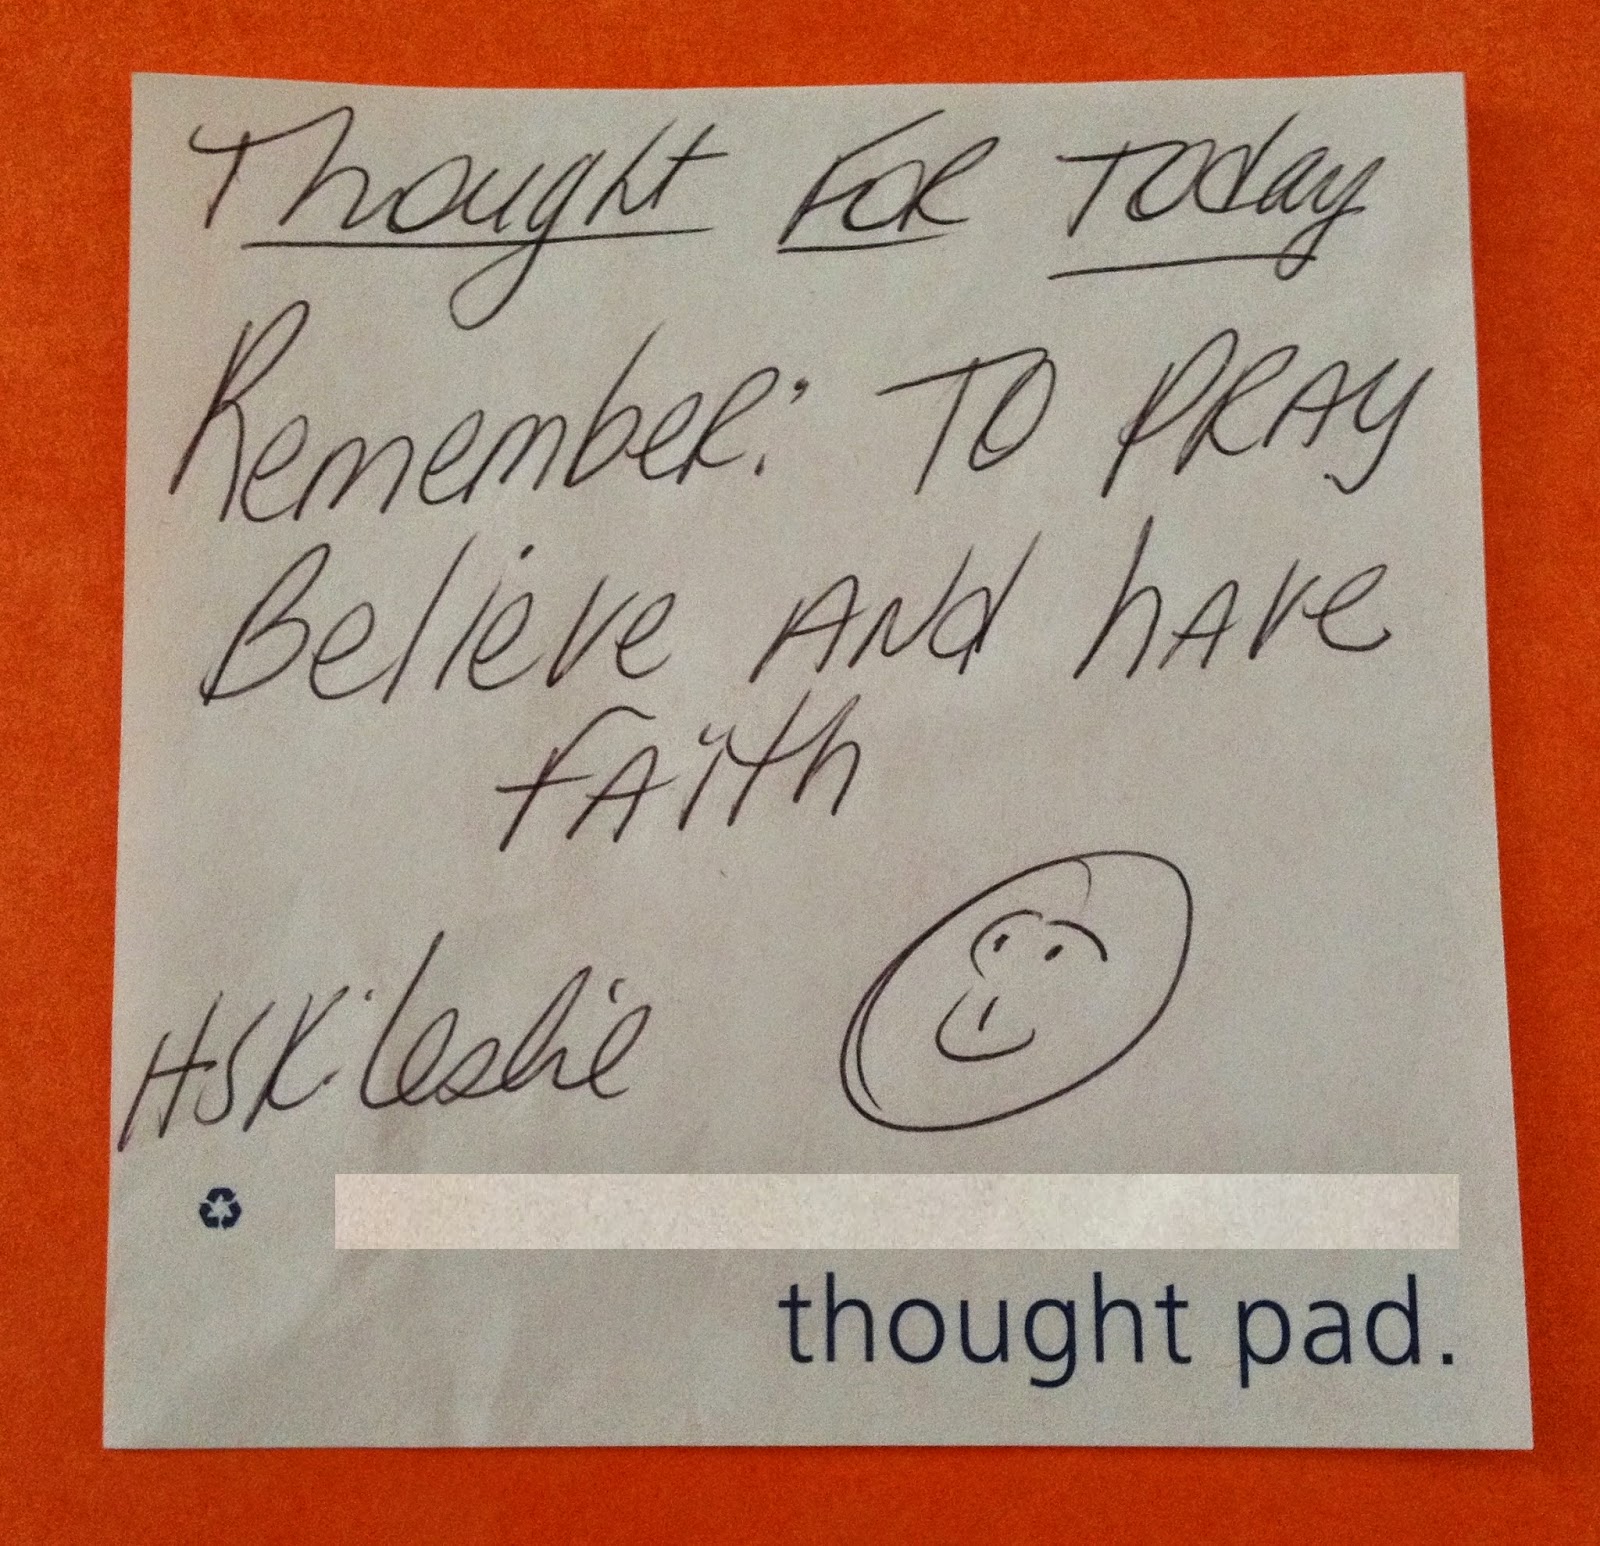 Thought FOR Today
Remember: TO PRAY
Believe AND hAve
fAith
HSK: Leslie
thought pad.